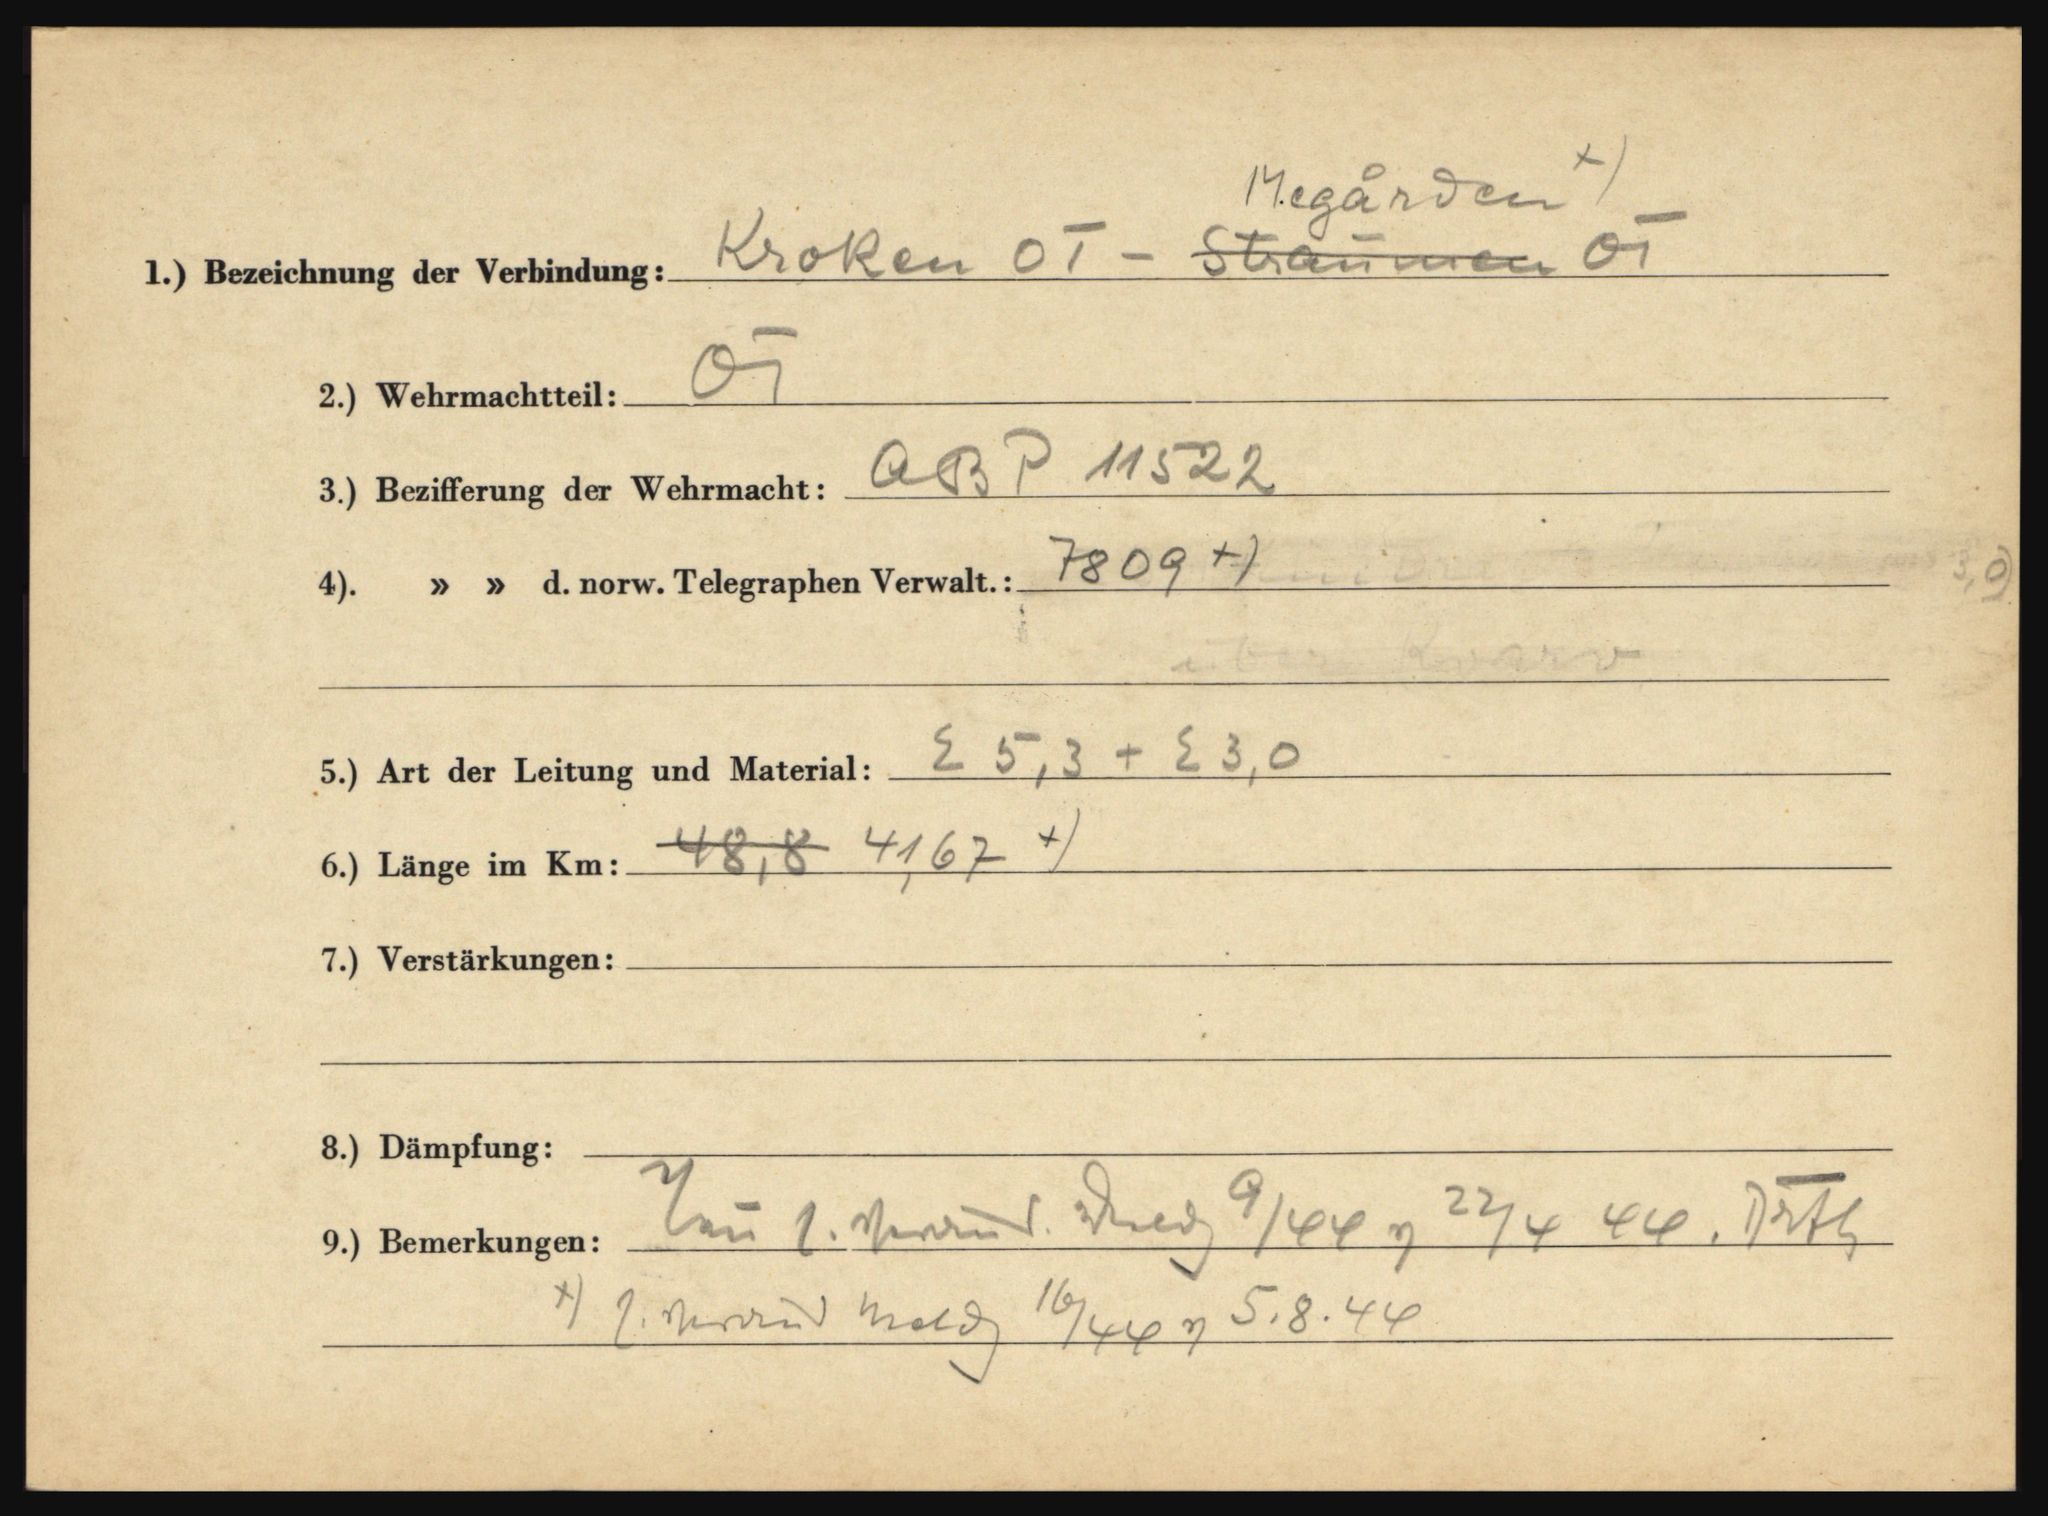 Megården +)
1.) Bezeichnung der Verbindung: Kroken OT – Straumen OT
2.) Wehrmachtteil: OT
3.) Bezifferung der Wehrmacht: ABP 11522
4). » » d. norw. Telegraphen Verwalt.: 7809 +) 3,0)
über Kvarv
5.) Art der Leitung und Material: Σ 5,3 + Σ 3,0
6.) Länge im Km: 48,8 41,67 +)
7.) Verstärkungen:
8.) Dämpfung:
9.) Bemerkungen: Neu l. Veränd. Meldg 9/44 v 22/4 44.
+) l. Veränd Meldg 16/44 v 5.8.44